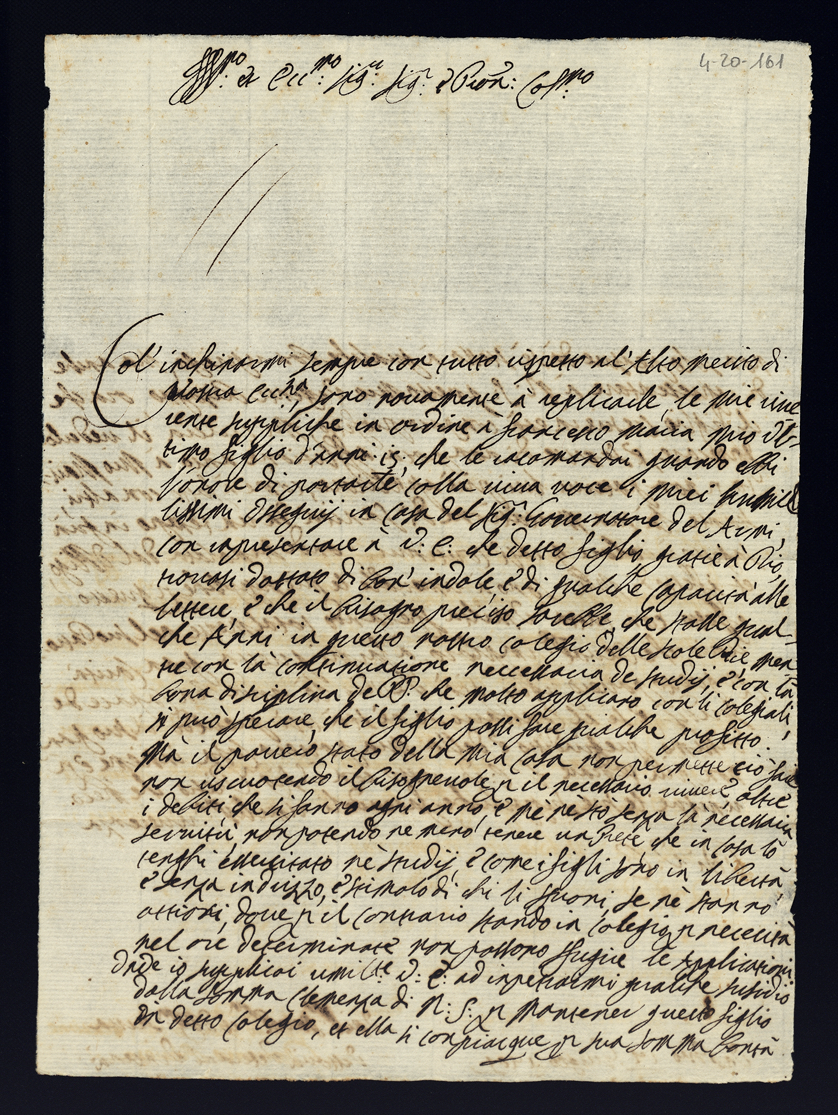 4-20-161
Ill.mo et Ecc.mo Sig.re Sig.r e Pron: Col.mo
Col' inchinarmi sempre con tutto rispetto al' Alto merito di
Vostra Ecc.za sono novamente à replicarle, le mie rive
rente suppliche in ordine à Francesco Maria mio Ul-
timo figlio d'anni 15, che le racomandai quando ebbi
l'onore di portarle colla viva voce i miei humil
lissimi ossequij in casa del Sig.r Governatore del Armi,
con rapresentare à V. E. che detto figlio, gratie à Dio,
trovasi dottato di bon' indole, è di qualche capacità alle
lettere, è che il bisogno preciso sarebbe che stasse qual-
che Anni in questo nostro colegio delle scole Pie, men
tre con la continuatione neccessaria de studij, è con la
bona disciplina de PP. che molto applicano con li colegiali
si può sperare, che il figlio possi fare qualche profitto.
Mà il povero stato della mia casa non permette ciò fare
non riscuotendo il bisognevole p il necessario vivere, oltre
i debiti, che si fanno ogni anno, è mè resto senza la necessaria
servitù, non potendo ne meno tenere un Prete che in casa lo
tenghi essercitato nè studij, è come i figli sono in libertà
è senza indrizzo, è stimolo di chi li sproni, se nè stanno
ottiosi, dove p il contrario stando in Colegio, p necessità
nel ore determinate non possono fugire le applicationi
Onde io supplicai umil.te V. E. ad inpetrarmi qualche susidio
dalla somma Clemenza di N. S. p mantener questo figlio
in detto Colegio, et ella si compiacque p sua somma bontà